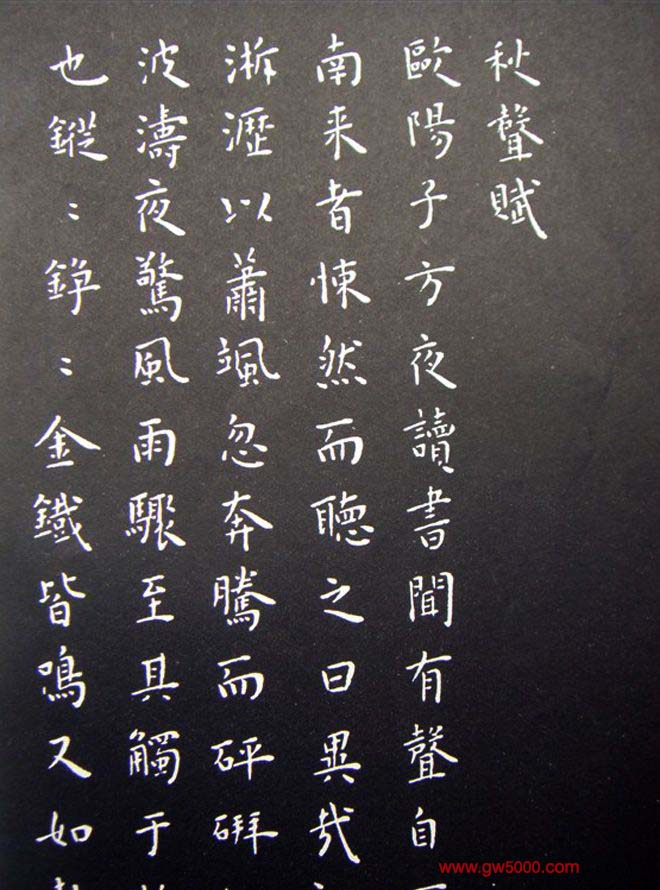 秋聲賦
歐陽子方夜讀書聞有聲自
南来者悚然而聽之曰異哉
淅瀝以蕭颯忽奔騰而砰硑
波濤夜驚風雨驟至其觸于
也鏦〻錚〻金鐵皆鳴又如
www.gw5000.com